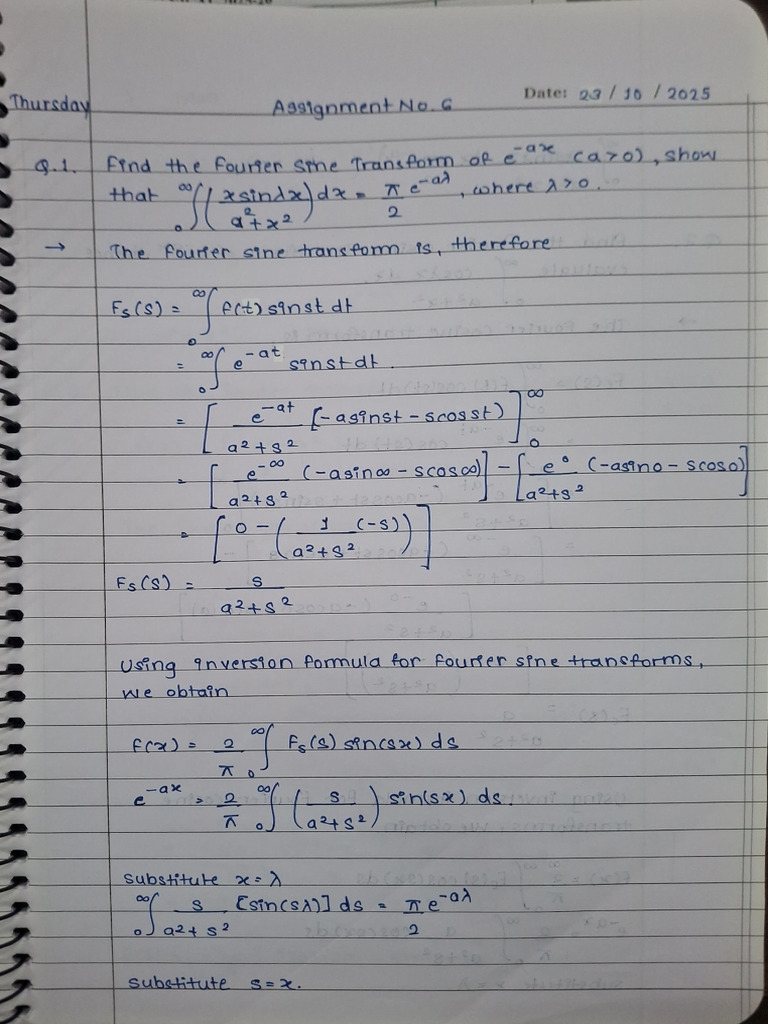 Thursday Assignment No. 6 Date: 23 / 10 / 2025
Q.1. Find the Fourier Sine Transform of e^{-ax} (a>0), show
that ∫_0^∞ (x sinλx / a²+x²) dx = π/2 e^{-aλ}, where λ>0.
→ The Fourier sine transform is, therefore
Fs(s) = ∫_0^∞ f(t) sinst dt
= ∫_0^∞ e^{-at} sinst dt.
= [ e^{-at} / a²+s² [-asinst - scosst) ]_0^∞
= [ e^{-∞} / a²+s² (-asin∞ - scos∞) ] - [ e^0 / a²+s² (-asin0 - scos0) ]
= [ 0 - ( 1 / a²+s² (-s) ) ]
Fs(s) = s / a²+s²
Using inversion formula for fourier sine transforms,
we obtain
f(x) = 2/π ∫_0^∞ Fs(s) sin(sx) ds
e^{-ax} = 2/π ∫_0^∞ ( s / a²+s² ) sin(sx) ds.
substitute x=λ
∫_0^∞ s / a²+s² [sin(sλ)] ds = π/2 e^{-aλ}
substitute s=x.